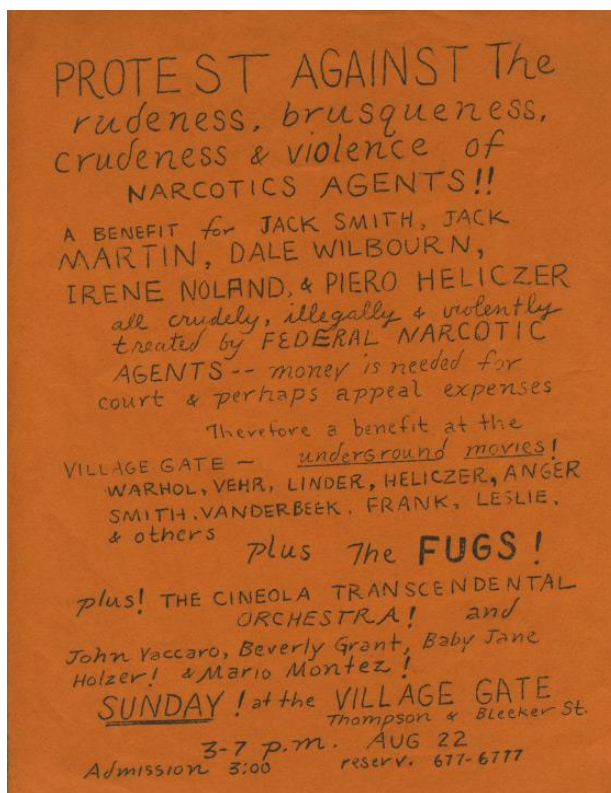 PROTEST AGAINST The
rudeness, brusqueness,
crudeness & violence of
NARCOTICS AGENTS!!
A BENEFIT for JACK SMITH, JACK
MARTIN, DALE WILBOURN,
IRENE NOLAND, & PIERO HELICZER
all crudely, illegally & violently
treated by FEDERAL NARCOTIC
AGENTS -- money is needed for
court & perhaps appeal expenses
Therefore a benefit at the
VILLAGE GATE — underground movies!
WARHOL, VEHR, LINDER, HELICZER, ANGER
SMITH, VANDERBEEK, FRANK, LESLIE,
& others
plus The FUGS!
plus! THE CINEOLA TRANSCENDENTAL
ORCHESTRA! and
John Vaccaro, Beverly Grant, Baby Jane
Holzer! & Mario Montez!
SUNDAY! at the VILLAGE GATE
Thompson & Bleeker St.
3-7 p.m. AUG 22
Admission 3:00 reserv. 677-6777